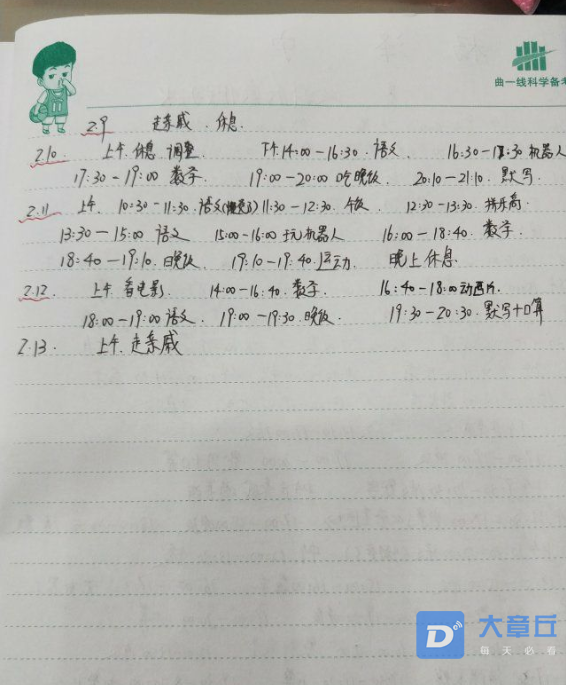 曲一线科学备考
2.9 走亲戚 休息
2.10. 上午. 休息 调整. 下午.14:00-16:30. 语文. 16:30-17:30 机器人
17:30-19:00 数学. 19:00-20:00 吃晚饭. 20:10-21:10. 默写.
2.11 上午. 10:30-11:30. 语文 11:30-12:30. 午饭. 12:30-13:30. 拼乐高.
13:30-15:00 语文 15:00-16:00 玩机器人 16:00-18:40. 数学.
18:40-19:10. 晚饭. 19:10-19:40. 运动. 晚上休息.
2.12. 上午 看电影. 14:00-16:40. 数学. 16:40-18:00 动画片.
18:00-19:00 语文. 19:00-19:30. 晚饭. 19:30-20:30. 默写+口算
2.13. 上午. 走亲戚
大章丘
每天必看